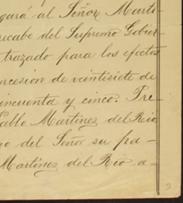 gará al Señor Marti-
recabe del Supremo Gobier-
trazado para los efectos
ncesion de veintisiete de
incuenta y cinco. Tre-
Pablo Martinez del Rio
go del Señor su pa-
Martinez del Rio a-